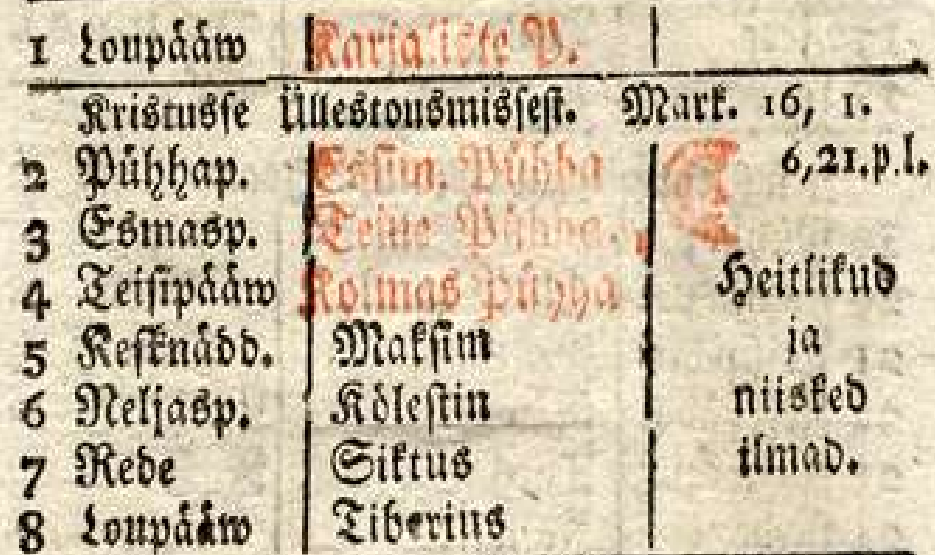 1 Loupääw Karjalikte P.
Kristusse Üllestousmissest. Mark. 16, 1.
2 Pühhap. Essim. Pühha 6,21.p.l.
3 Esmasp. Teine Pühha.
4 Teisipääw Kolmas Pühha Heitlikud
5 Kesknädd. Maksim ja
6 Neljasp. Kölestin niisked
7 Rede Sikstus ilmad.
8 Loupääw Tiberius